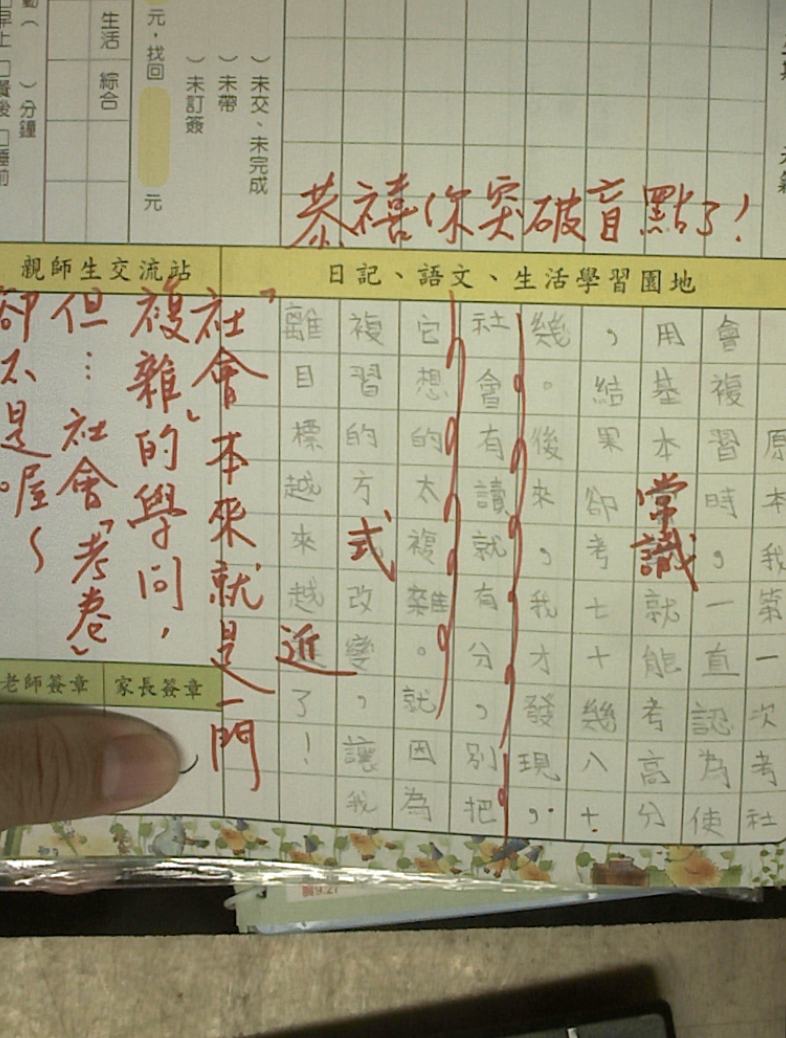 ）未交、未完成
）未帶
）未訂簽
元，找回 元
生活 綜合
）分鐘
□餐後 □睡前
恭禧你突破盲點了！
日記、語文、生活學習園地
原本我第一次考社
會複習時，一直認為使
用基本常識就能考高分
，結果卻考七十幾八十
幾。後來，我才發現，
社會有讀就有分，別把
它想的太複雜。就因為
複習的方式改變，讓我
離目標越來越近了！
親師生交流站
「社會」本來就是一門
複雜的學問，
但…社會「考卷」
卻不是喔～
家長簽章
老師簽章